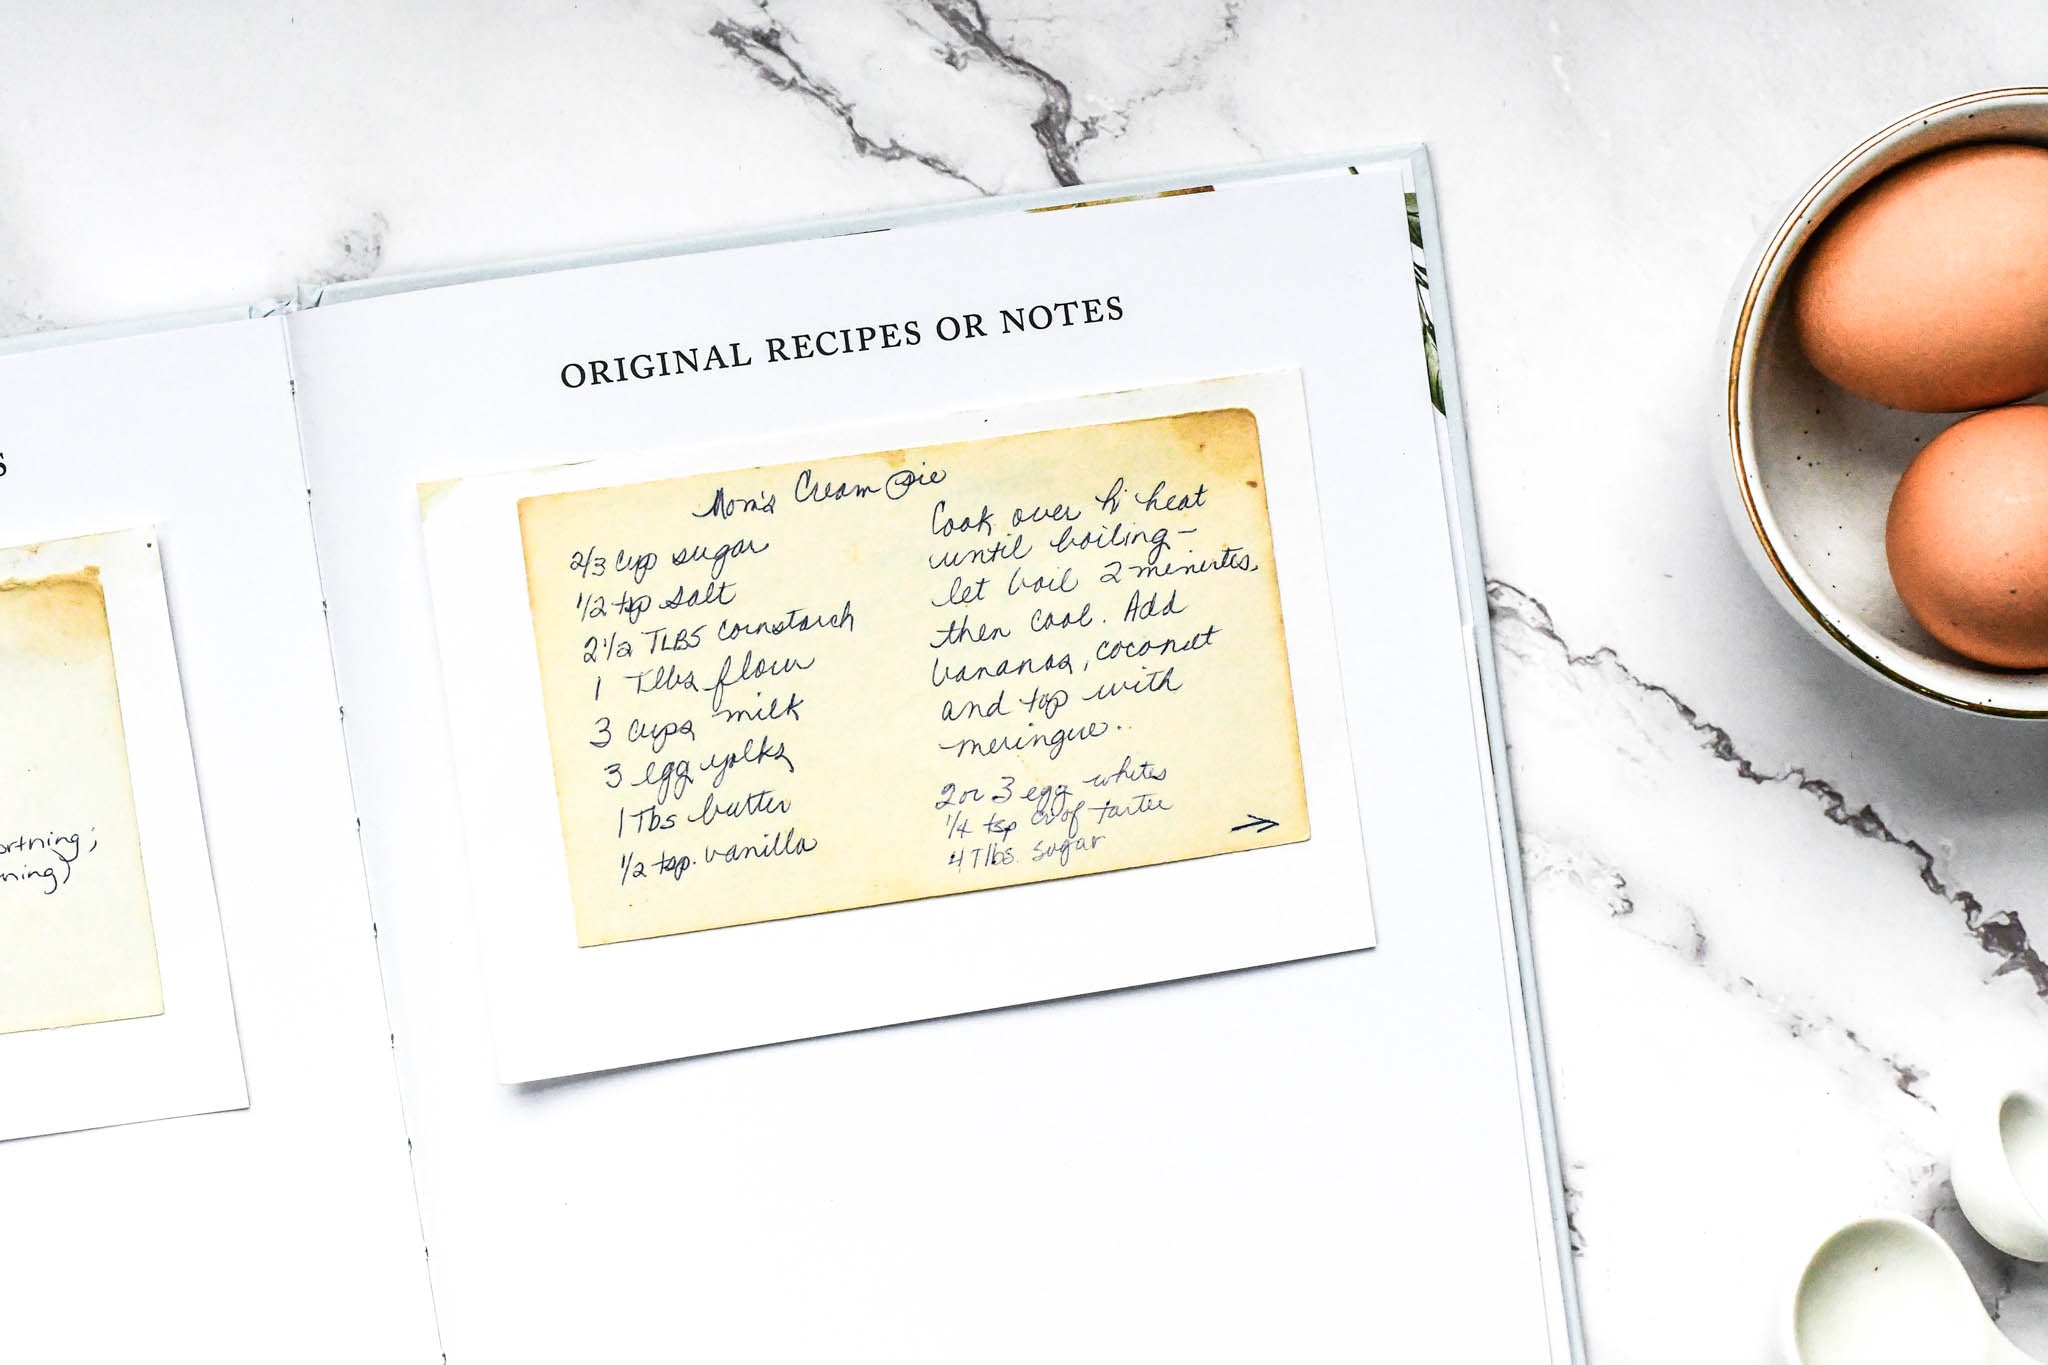 S
ortning;
ning)
ORIGINAL RECIPES OR NOTES
Mom's Cream Pie
2/3 cup sugar
1/2 tsp salt
2 1/2 TLBS cornstarch
1 Tlbs flour
3 cups milk
3 egg yolks
1 Tbs butter
1/2 tsp. vanilla
Cook over hi heat
until boiling –
let boil 2 minutes,
then cool. Add
bananas, coconut
and top with
meringue..
2 or 3 egg whites
1/4 tsp cr of tarter
4 Tlbs. sugar
→